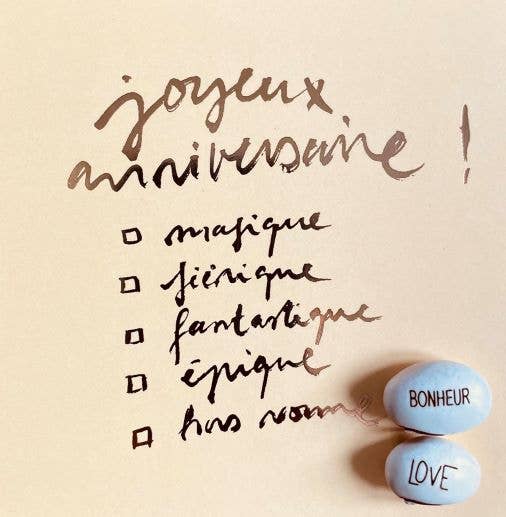 joyeux
anniversaire !
magique
féérique
fantastique
épique
hors norme
BONHEUR
LOVE